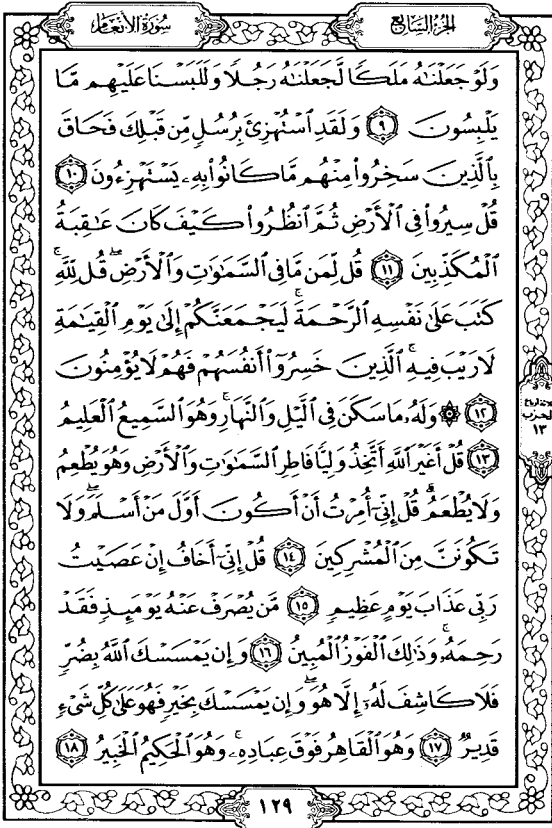 سُورَةُ الأَنْعَامِ
الجُزْءُ السَّابِعُ
وَلَوْ جَعَلْنَٰهُ مَلَكًا لَّجَعَلْنَٰهُ رَجُلًا وَلَلَبَسْنَا عَلَيْهِم مَّا
يَلْبِسُونَ ۝٩ وَلَقَدِ ٱسْتُهْزِئَ بِرُسُلٍ مِّن قَبْلِكَ فَحَاقَ
بِٱلَّذِينَ سَخِرُوا۟ مِنْهُم مَّا كَانُوا۟ بِهِۦ يَسْتَهْزِءُونَ ۝١٠
قُلْ سِيرُوا۟ فِى ٱلْأَرْضِ ثُمَّ ٱنظُرُوا۟ كَيْفَ كَانَ عَٰقِبَةُ
ٱلْمُكَذِّبِينَ ۝١١ قُل لِّمَن مَّا فِى ٱلسَّمَٰوَٰتِ وَٱلْأَرْضِۖ قُل لِّلَّهِۚ
كَتَبَ عَلَىٰ نَفْسِهِ ٱلرَّحْمَةَۚ لَيَجْمَعَنَّكُمْ إِلَىٰ يَوْمِ ٱلْقِيَٰمَةِ
لَا رَيْبَ فِيهِۚ ٱلَّذِينَ خَسِرُوٓا۟ أَنفُسَهُمْ فَهُمْ لَا يُؤْمِنُونَ
۝١٢ ۞ وَلَهُۥ مَا سَكَنَ فِى ٱلَّيْلِ وَٱلنَّهَارِۚ وَهُوَ ٱلسَّمِيعُ ٱلْعَلِيمُ
۝١٣ قُلْ أَغَيْرَ ٱللَّهِ أَتَّخِذُ وَلِيًّا فَاطِرِ ٱلسَّمَٰوَٰتِ وَٱلْأَرْضِ وَهُوَ يُطْعِمُ
وَلَا يُطْعَمُۗ قُلْ إِنِّىٓ أُمِرْتُ أَنْ أَكُونَ أَوَّلَ مَنْ أَسْلَمَۖ وَلَا
تَكُونَنَّ مِنَ ٱلْمُشْرِكِينَ ۝١٤ قُلْ إِنِّىٓ أَخَافُ إِنْ عَصَيْتُ
رَبِّى عَذَابَ يَوْمٍ عَظِيمٍ ۝١٥ مَّن يُصْرَفْ عَنْهُ يَوْمَئِذٍ فَقَدْ
رَحِمَهُۥۚ وَذَٰلِكَ ٱلْفَوْزُ ٱلْمُبِينُ ۝١٦ وَإِن يَمْسَسْكَ ٱللَّهُ بِضُرٍّ
فَلَا كَاشِفَ لَهُۥٓ إِلَّا هُوَۖ وَإِن يَمْسَسْكَ بِخَيْرٍ فَهُوَ عَلَىٰ كُلِّ شَىْءٍ
قَدِيرٌ ۝١٧ وَهُوَ ٱلْقَاهِرُ فَوْقَ عِبَادِهِۦۚ وَهُوَ ٱلْحَكِيمُ ٱلْخَبِيرُ ۝١٨
الحزب
١٣
١٢٩